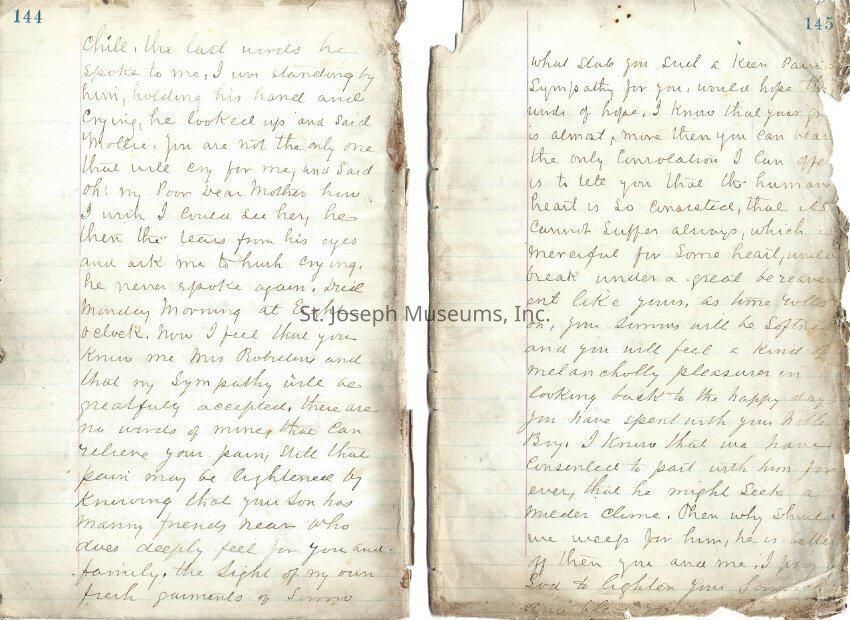 144
Chill. the last words he
spoke to me, I was standing by
him, holding his hand and
Crying, he looked up and Said
Mollie. you are not the only one
that will cry for me, and Said
oh! my Poor Dear Mother how
I wish I Could See her, he
then the tears from his eyes
and ask me to hush Crying.
he never spoke again. Died
Monday Morning at
oclock. Now I feel that you
Know me Mrs Robidoux and
that my Sympathy will be
greatfuly accepted. there are
no words of mine, that Can
relieve your pain, Still that
pain may be lightened by
Knowing that your Son has
manny friends near who
does deeply feel for you and
family. the Sight of my own
fresh garments of Sorrow
145
what stab you Such a Keen
Sympathy for you, would hope
words of hope. I Know that your
is almost, more then you can bear
the only Consolation I Can
is to tele you that the human
heart is So Consrated, that
Cannot Suffer always, which
merciful for Some heart, would
break under a great bereavem
ent like yours, as time rolls
on, your Sorrows will be Softne
and you will feel a Kind of
melancholly pleasures in
looking back to the happy day
you have spent with your Noble
Boy. I Know that we have
Consented to part with him for
ever, that he might Seek a
milder clime. then why should
we weep for him, he is better
off then you and me. I pray
God to lighten your
St. Joseph Museums, Inc.